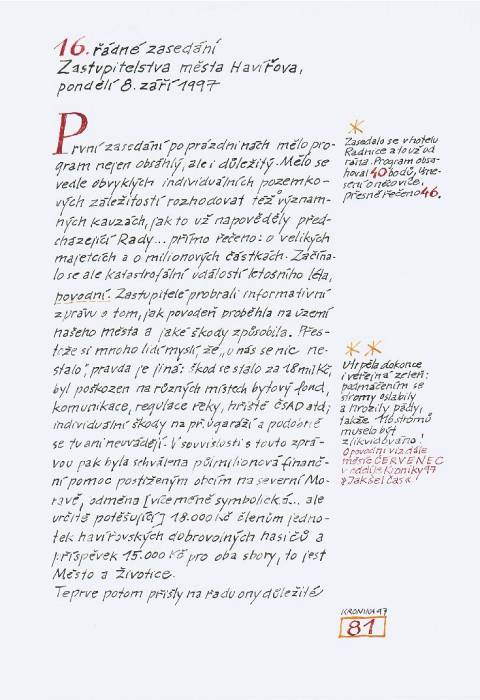 16. řádné zasedání
Zastupitelstva města Havířova,
pondělí 8. září 1997
První zasedání po prázdninách mělo pro-
gram nejen obsáhlý, ale i důležitý. Mělo se
vedle obvyklých individuálních pozemko-
vých záležitostí rozhodovat též význam-
ných kauzách, jak to už napověděly před-
cházející Rady... přímo řečeno: o velikých
majetcích a o milionových částkách. Začína-
lo se ale katastrofální událostí letošního léta,
povodní. Zastupitelé probrali informativní
zprávu o tom, jak povodeň proběhla na území
našeho města a jaké škody způsobila. Přes-
tože si mnoho lidí myslí, že „u nás se nic ne-
stalo" pravda je jiná: škod se stalo za 18 mil Kč,
byl poškozen na různých místech bytový fond,
komunikace, regulace řeky, hřiště ČSAD atd;
individuální škody na př. v garáží a podobně
se tu ani neuvádějí. V souvislosti s touto zprá-
vou pak byla schválena půlmilionová finanč-
ní pomoc postiženým obcím na severní Mo-
ravě, odměna [více méně symbolická... ale
určitě potěšující] 18.000 Kč členům jedno-
tek havířovských dobrovolných hasičů a
příspěvek 15.000 Kč pro oba sbory, to jest
Město a Životice.
Teprve potom přišly na řadu ony důležité
*
Zasedalo se v hotelu
Radnice a to už od
rána. Program obsa-
hoval 40 bodů, Usne-
sení o něco více,
přesně řečeno 46.
* *
Utrpěla dokonce
i veřejná zeleň:
podmáčením se
stromy oslabily
a hrozily pády,
takže 116 stromů
muselo být
zlikvidováno!
O povodni viz dále
měsíc ČERVENEC
v oddíle Kroniky 97
„Jak šel čas"
KRONIKA 97
81